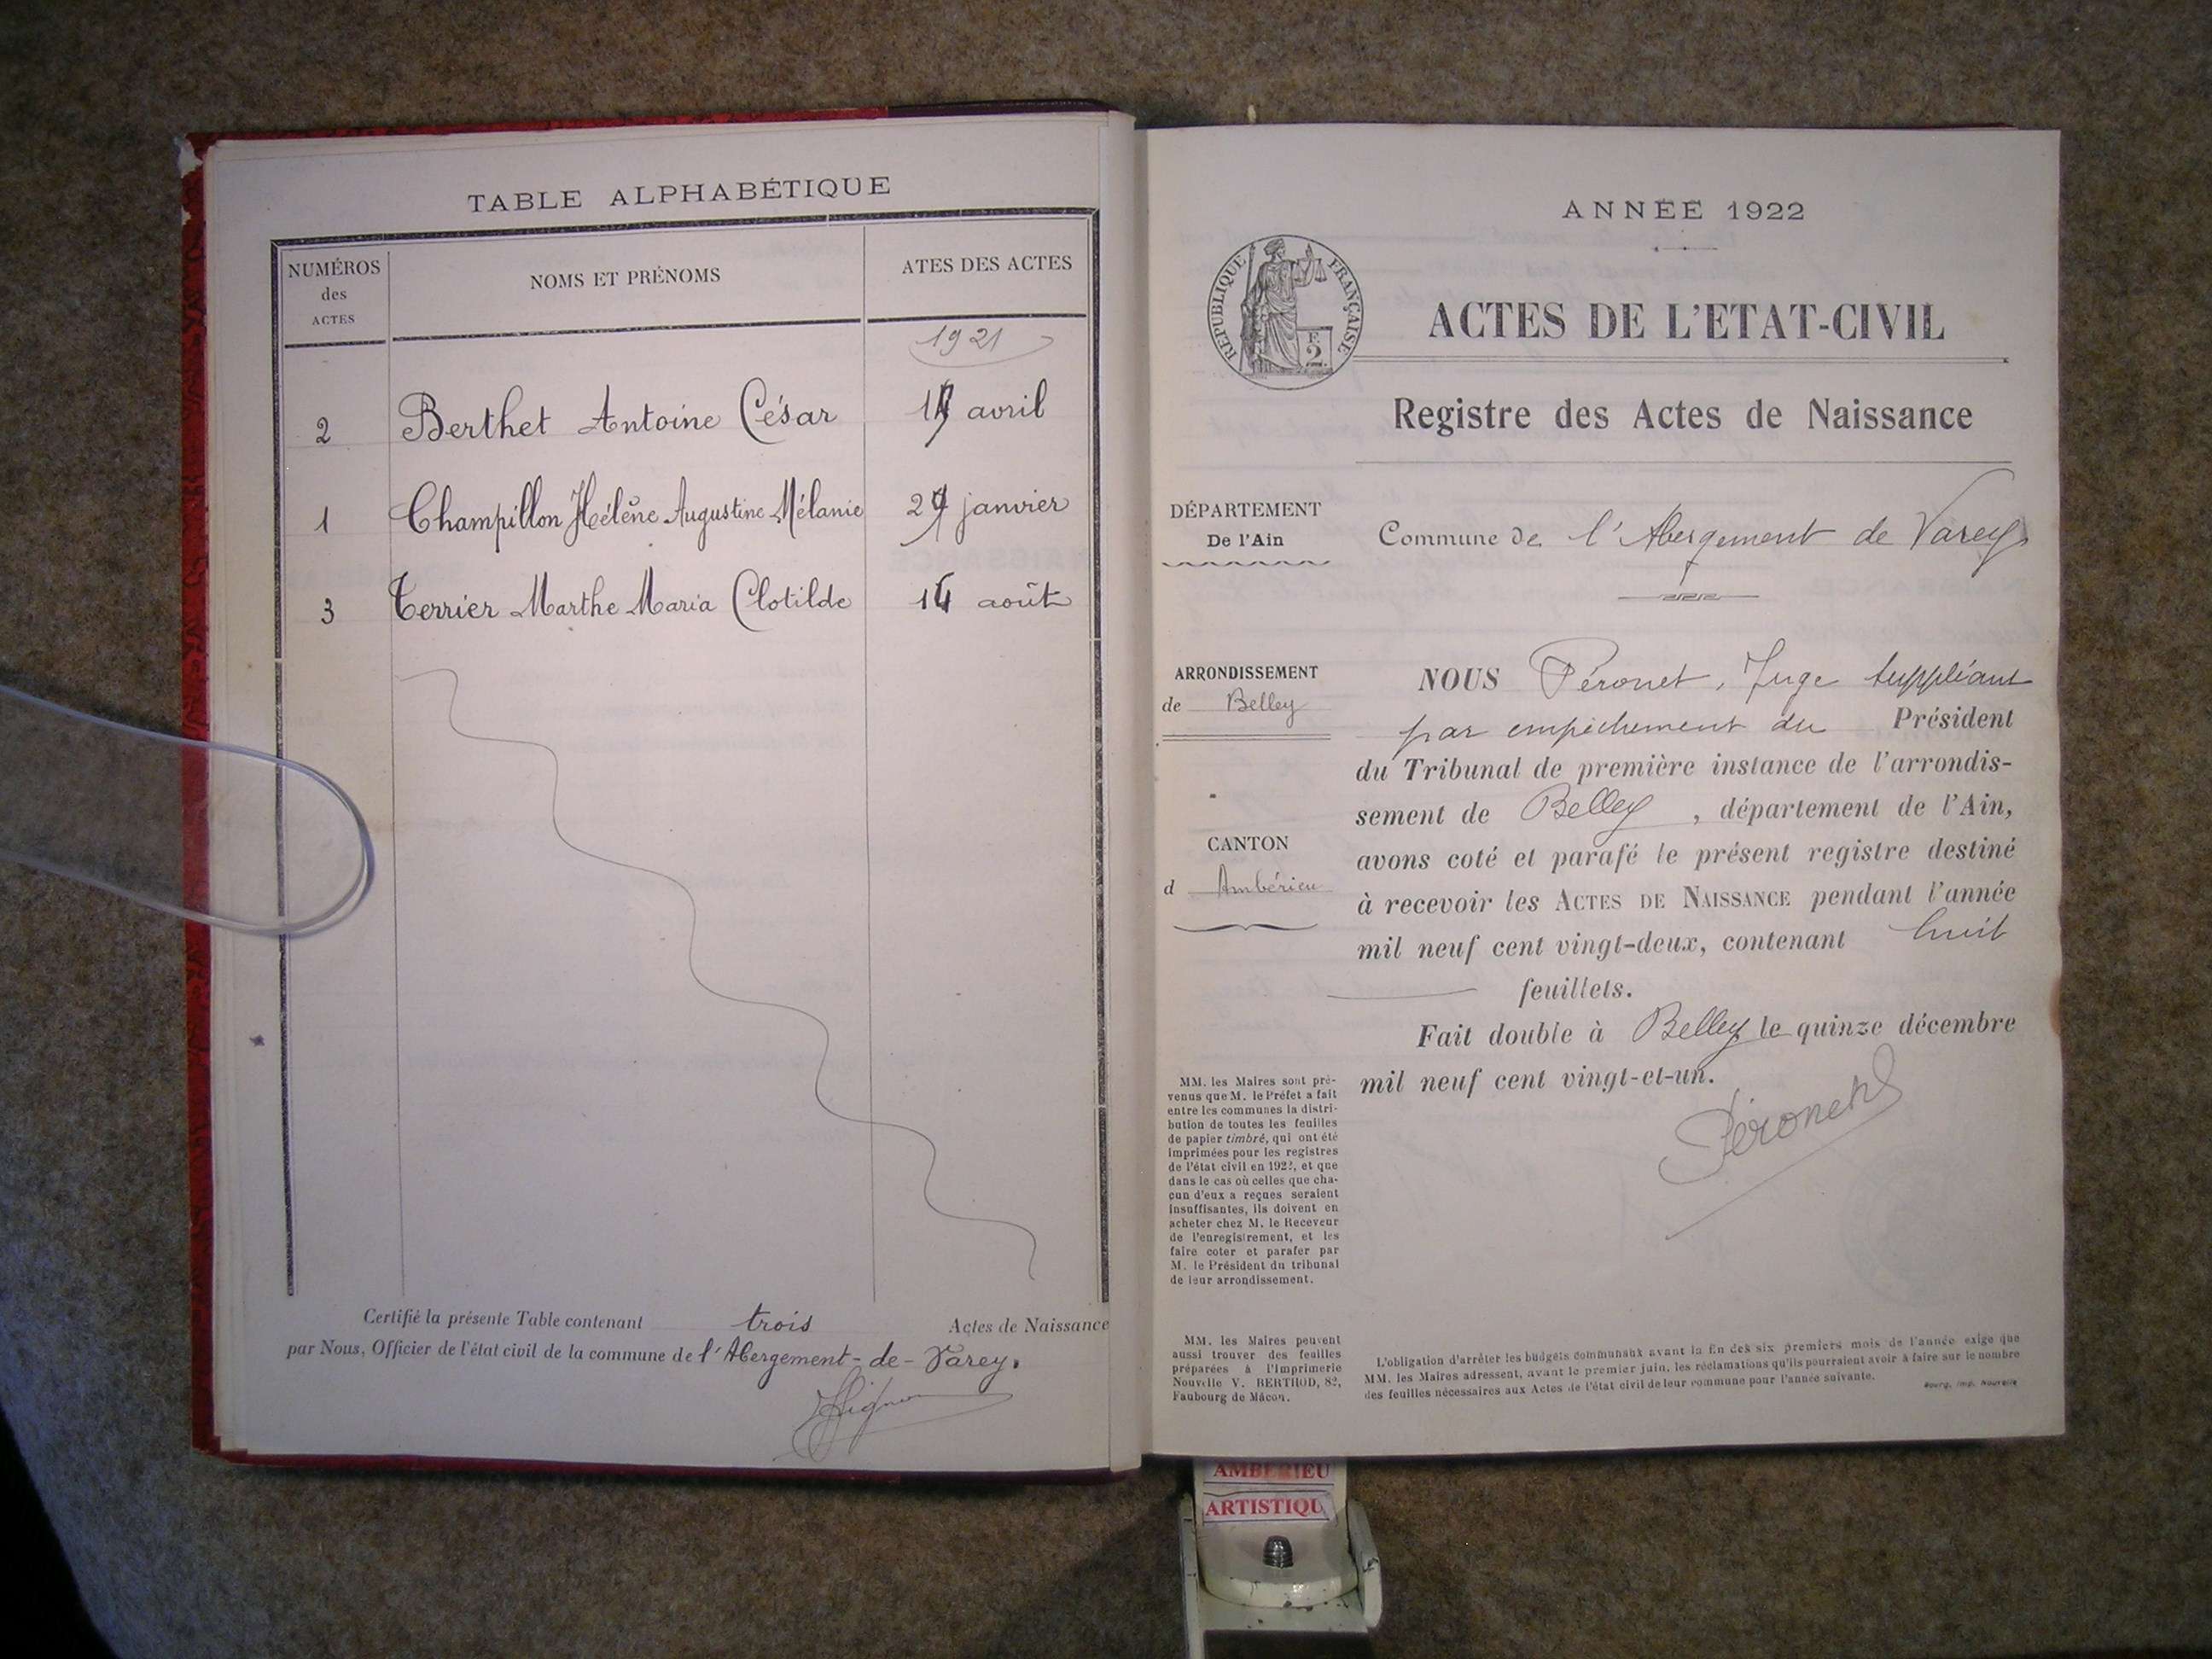 TABLE ALPHABÉTIQUE
NUMÉROS
des
ACTES
NOMS ET PRÉNOMS
ATES DES ACTES
1921
2 Berthet Antoine César avril
1 Champillon Hélène Augustine Mélanie janvier
3 Terrier Marthe Maria Clotilde août
Certifié la présente Table contenant trois Actes de Naissance
par Nous, Officier de l'état civil de la commune de l'Abergement-de-Varey.
ANNÉE 1922
RÉPUBLIQUE FRANÇAISE
F.
2.
ACTES DE L'ETAT-CIVIL
Registre des Actes de Naissance
DÉPARTEMENT
De l'Ain
Commune de l'Abergement de Varey
ARRONDISSEMENT
de Belley
CANTON
d Ambérieu
NOUS Péronet, Juge suppléant
par empêchement du Président
du Tribunal de première instance de l'arrondis-
sement de Belley, département de l'Ain,
avons coté et parafé le présent registre destiné
à recevoir les ACTES DE NAISSANCE pendant l'année
mil neuf cent vingt-deux, contenant huit
feuillets.
Fait double à Belley le quinze décembre
mil neuf cent vingt-et-un.
Péronet
MM. les Maires sont pré-
venus que M. le Préfet a fait
entre les communes la distri-
bution de toutes les feuilles
de papier timbré, qui ont été
imprimées pour les registres
de l'état civil en 1922, et que
dans le cas où celles que cha-
cun d'eux a reçues seraient
insuffisantes, ils doivent en
acheter chez M. le Receveur
de l'enregistrement, et les
faire coter et parafer par
M. le Président du tribunal
de leur arrondissement.
MM. les Maires peuvent
aussi trouver des feuilles
préparées à l'Imprimerie
Nouvelle V. BERTHOD, 82,
Faubourg de Mâcon.
L'obligation d'arrêter les budgets communaux avant la fin des six premiers mois de l'année exige que
MM. les Maires adressent, avant le premier juin, les réclamations qu'ils pourraient avoir à faire sur le nombre
des feuilles nécessaires aux Actes de l'état civil de leur commune pour l'année suivante.
Bourg, Imp. Nouvelle
AMBERIEU
ARTISTIQU